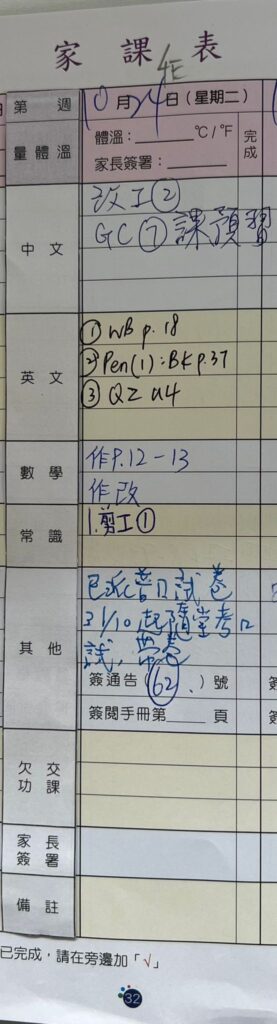 家課表
4E
第 週 10月24日(星期二) 完成
量體溫 體溫：______℃/℉
家長簽署：______
中文
改工②
GC⑦課預習
英文
①WB p.18
②Pen(1):BK p.37
③QZ u4
數學
作P.12-13
作改
常識
1.剪工①
其他
已派普口試卷
31/10起隨堂考口
試，帶卷
簽通告(62.)號
簽閱手冊第____頁
欠交功課
家長簽署
備註
已完成，請在旁邊加「√」
32